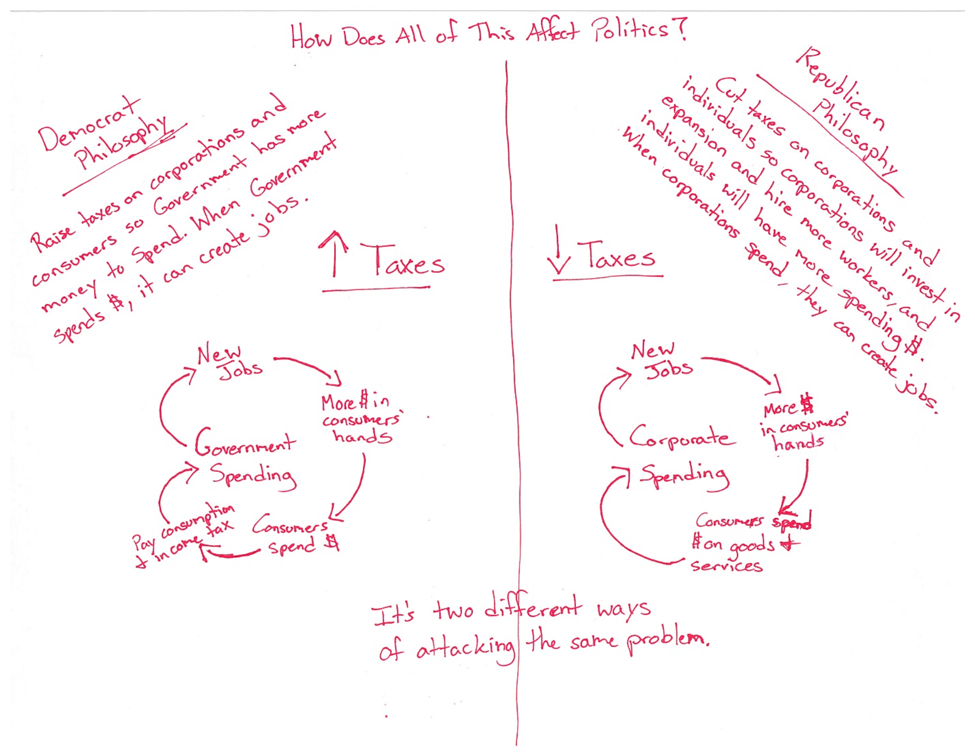 How Does All of This Affect Politics?
Democrat
Philosophy
Raise taxes on corporations and
consumers so Government has more
money to Spend. When Government
spends $, it can create jobs.
↑ Taxes
New
Jobs
More $ in
consumers'
hands
Consumers
spend $
Pay consumption
+ income tax
Government
Spending
Republican
Philosophy
Cut taxes on corporations and
individuals so corporations will invest in
expansion and hire more workers, and
individuals will have more spending $.
When corporations spend, they can create jobs.
↓ Taxes
New
Jobs
More $
in consumers'
hands
Consumers spend
$ on goods +
services
Corporate
Spending
It's two different ways
of attacking the same problem.